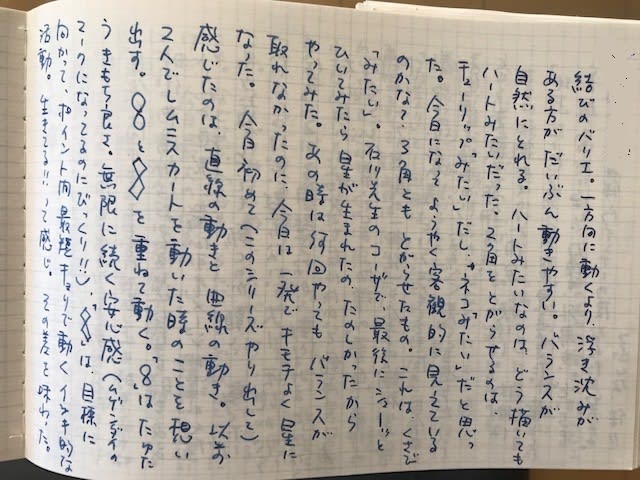 結びのバリエ。一方向に動くより、浮き沈みが
ある方がだいぶん動きやすい。バランスが
自然にとれる。ハートみたいなのは、どう描いても
ハートみたいだった。2角をとがらせるのは、
チューリップ"みたい"だし、"ネコ"みたい"だと思っ
た。今日になってようやく客観的に見えている
のかなて、3角ともとがらせたもの。これは、くさび
「みたい」。石川先生のコーザで、最後にシューッと
ひいてみたら星が生まれたの、たのしかったから
やってみた。あの時は何回やってもバランスが
取れなかったのに、今日は一発でキモチよく星に
なった。今日初めて(このシリーズやり出して)
感じたのは、直線の動きと曲線の動き。以前
2人でレムニスカートを動いた時のことを想い
出す。8と を重ねて動く。「8」はたゆた
うきもち良さ。無限に続く安心感(インフィニティの
マークになってるのにびっくり!!)、 は、目標に
向かって、ポイント間最短キョリで動く
活動。生きてる!!って感じ。その差を味わった。